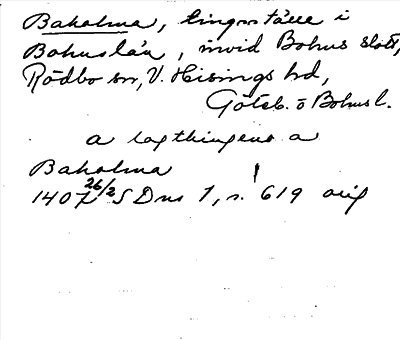 Bakolma, tingsställe i
Bohuslän, invid Bohus slott,
Rödbo sn, V. Hisings hd,
Göteb. o Bohusl.
a lagthingeno a
Bakolma
1407 26/2 SDns 1, s. 619 orig